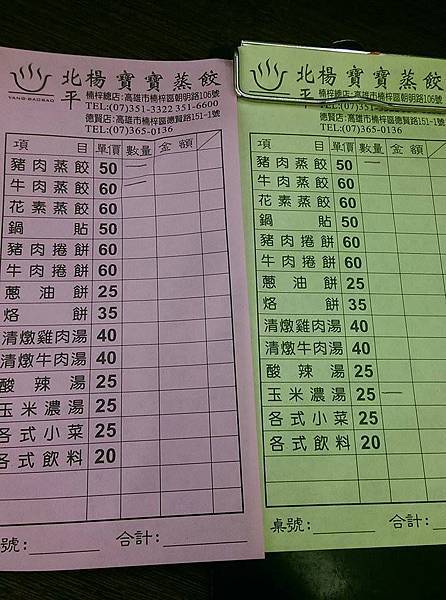 北平 楊寶寶蒸餃
YANG-BAOBAO
楠梓總店:高雄市楠梓區朝明路106號
TEL:(07)351-3322 351-6600
德賢店:高雄市楠梓區德賢路151-1號
TEL:(07)365-0136
項目 單價 數量 金額
豬肉蒸餃 50
牛肉蒸餃 60
花素蒸餃 60
鍋貼 50
豬肉捲餅 60
牛肉捲餅 60
蔥油餅 25
烙餅 35
清燉雞肉湯 40
清燉牛肉湯 40
酸辣湯 25
玉米濃湯 25
各式小菜 25
各式飲料 20
號: 合計:
北平 楊寶寶蒸餃
楠梓總店:高雄市楠梓區朝明路106號
TEL:(07)351-3322 351-6600
德賢店:高雄市楠梓區德賢路151-1號
TEL:(07)365-0136
項目 單價 數量 金額
豬肉蒸餃 50 一
牛肉蒸餃 60
花素蒸餃 60
鍋貼 50
豬肉捲餅 60
牛肉捲餅 60
蔥油餅 25
烙餅 35
清燉雞肉湯 40
清燉牛肉湯 40
酸辣湯 25
玉米濃湯 25 一
各式小菜 25
各式飲料 20
桌號: 合計: